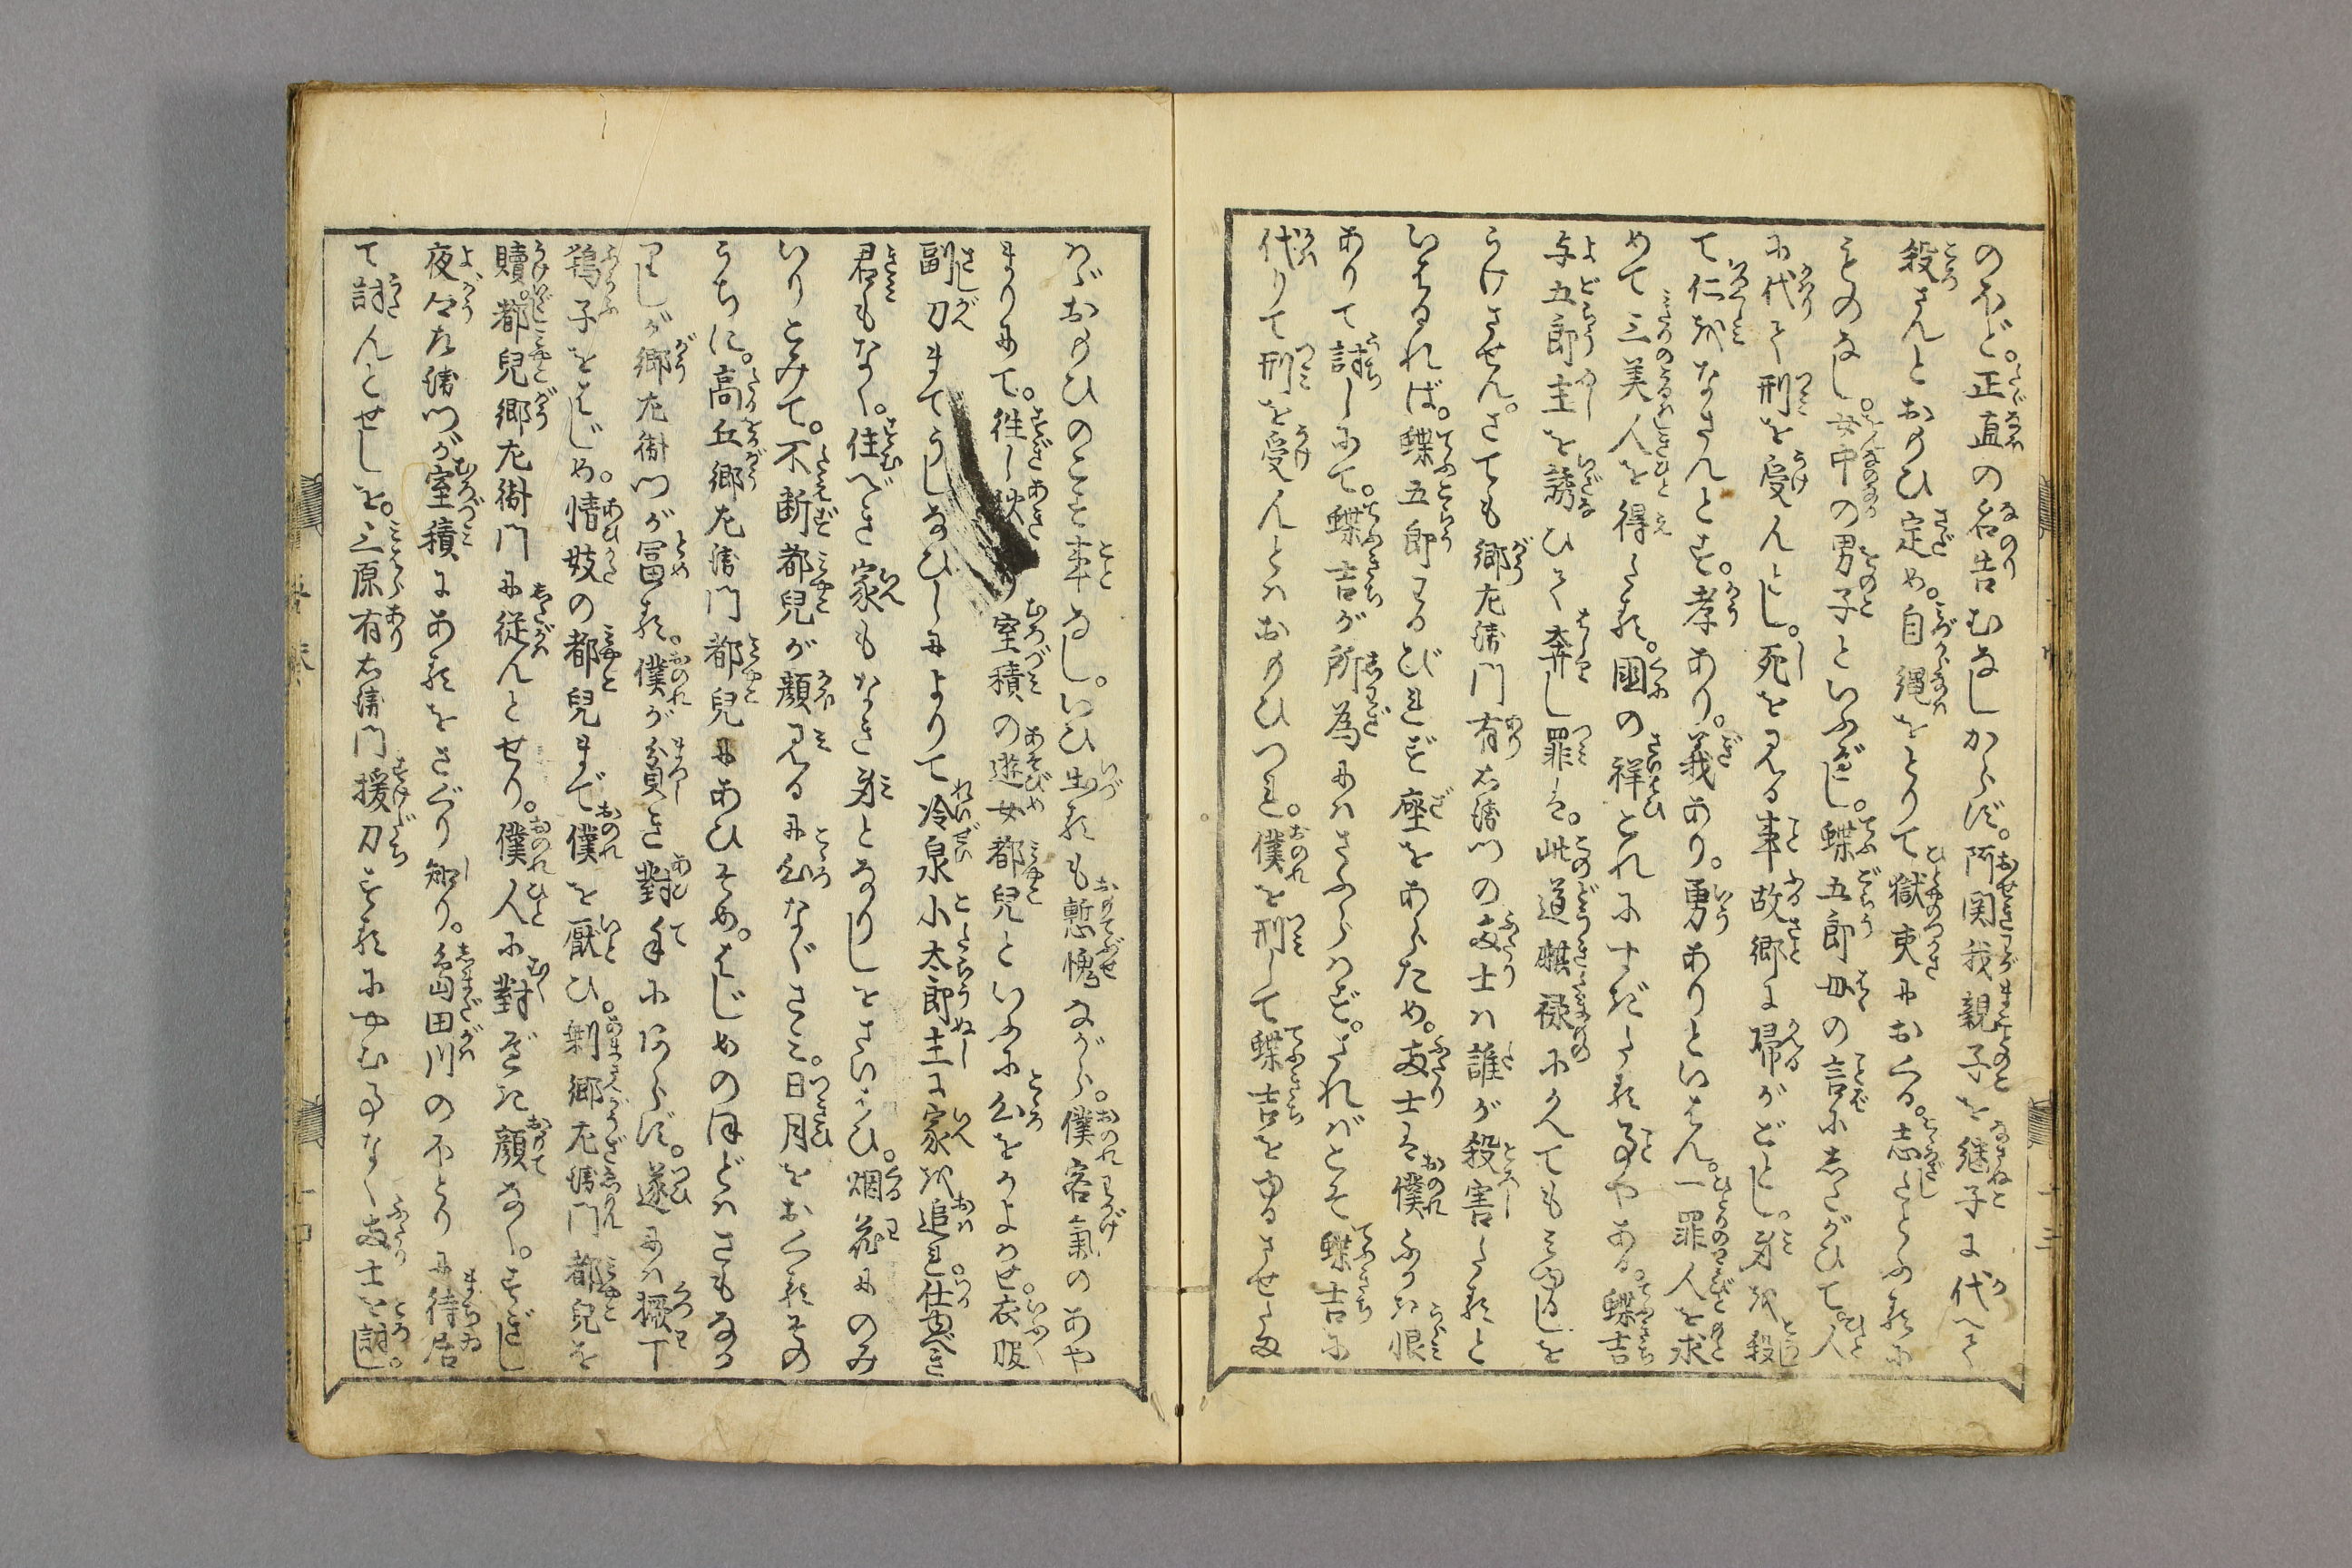 のふど。正直の名告むなしからず。阿関我親子を継子に代へて
殺さんとおもひ定め。自縄をとりて獄吏におくる。志たとふるに
ものなし。女中の男子といふべし。蝶五郎母の言にしたがひて。人
に代て刑を受んとし。死を見る事故郷に帰がごとし。身を殺し
て仁をなさんとす。孝あり。義あり。勇ありといはん。一罪人を求
めて三美人を得たる。国の祥これにすぎたる事やある。蝶吉
与五郎主を誘ひて奔し罪は。此道麒禄にかへてもゆるしを
うけさせん。さても郷左衛門有右衛門の両士は誰が殺害したると
いはるれば。蝶五郎わるびれず座をあらため。両士は僕ふかき恨
ありて討しにて。蝶吉が所為にはさふらはず。さればとて蝶吉に
代りて刑を受んとはおもひつれ。僕を刑して蝶吉をゆるさせたま
はゞおもひのこす事なし。いひ出るも慙愧ながら。僕客気のあや
まりにて。往し秋より室積の遊女都児といふに心をかよはせ。衣服
副刀まてうしなひしによりて冷泉小太郎主に家を追れ。仕ふべき
君もなく。住べき家もなき身となりしをさいはひ。烟花にのみ
いりこみて。不断都児が顔見るに心なぐさみ。日月をおくるその
うちに。高丘郷左衛門都児にあひそめ。はじめのほどはさもなか
りしが郷左衛門が富る。僕が貧き対手にあらず。遂には橛丁
鴇子をはじめ。情妓の都児まで僕を厭ひ。剰郷左衛門都児を
贖。都児郷左衛門に従んとせり。僕人に対ずべき顔なく。すごし
夜々左衛門が室積にあるをさぐり知り。島田川のほとりに待居
て討んとせしを。三原有右衛門援刀するにやむ事なく両士を討し。